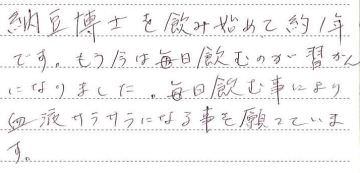 納豆博士を飲み始めて約1年
です。もう今は毎日飲むのが習かん
になりました。毎日飲む事により
血液サラサラになる事を願っていま
す。